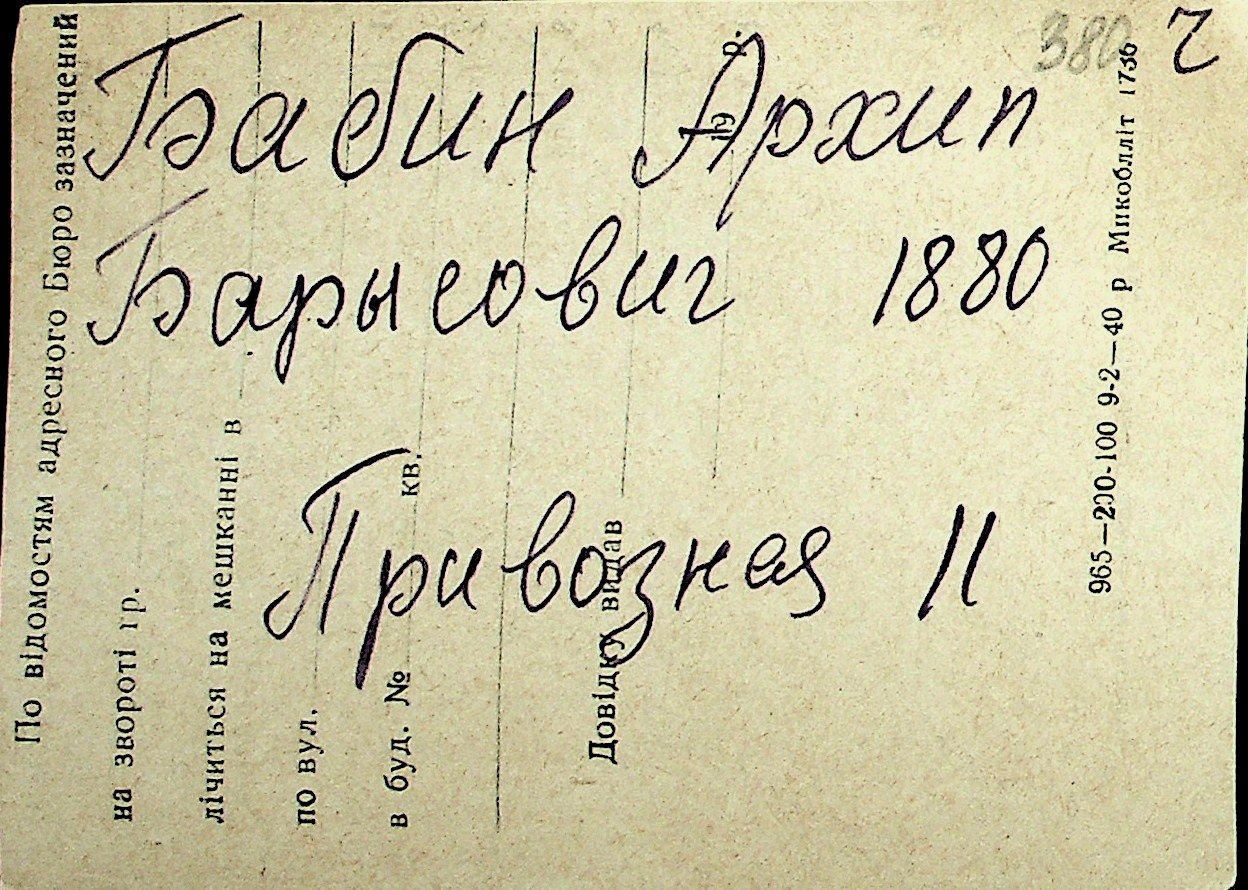 380 г
Бабин Архип
Барысовиг 1880
Привозная 11
По відомостям адресного Бюро зазначений
на звороті гр.
лічиться на мешканні в
по вул.
в буд. № кв.
Довідку видав
19 р.
965—200-100 9-2—40 р Микобл​літ 1736